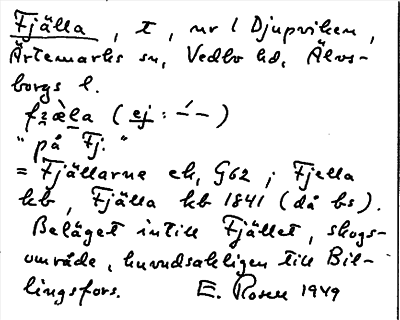 Fjälla, t, nr 1 Djupviken,
Ärtemarks sn, Vedbo hd, Älvs-
borgs l.
fzɛ̀la (ej: ´ – –)
"på Fj."
= Fjällarne ek, G62; Fjella
kb, Fjälla kb 1841 (då bs).
Beläget intill Fjället, skogs-
område, huvudsakligen till Bil-
lingsfors. E. Rosen 1949